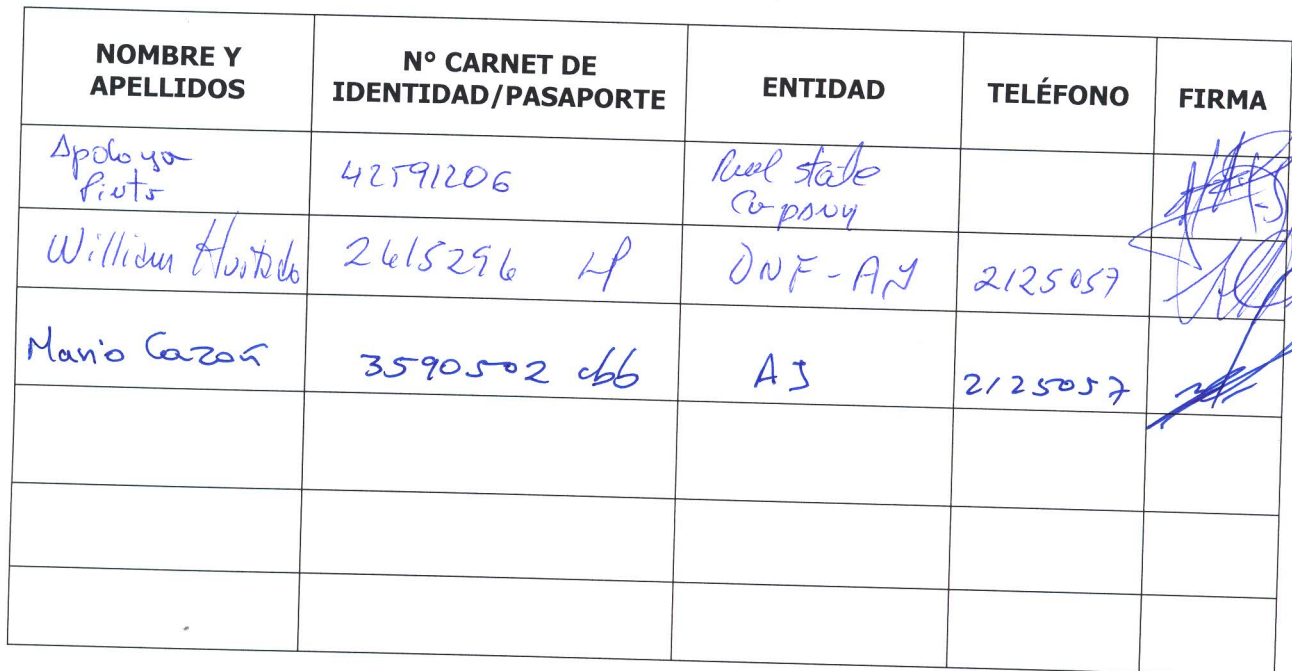 NOMBRE Y
APELLIDOS
Nº CARNET DE
IDENTIDAD/PASAPORTE
ENTIDAD
TELÉFONO
FIRMA
Pinto
42591206
Real state
William Hurtado
2615296 LP
DNF-AJ
2125057
Mario
3590502 cbb
AJ
2125057